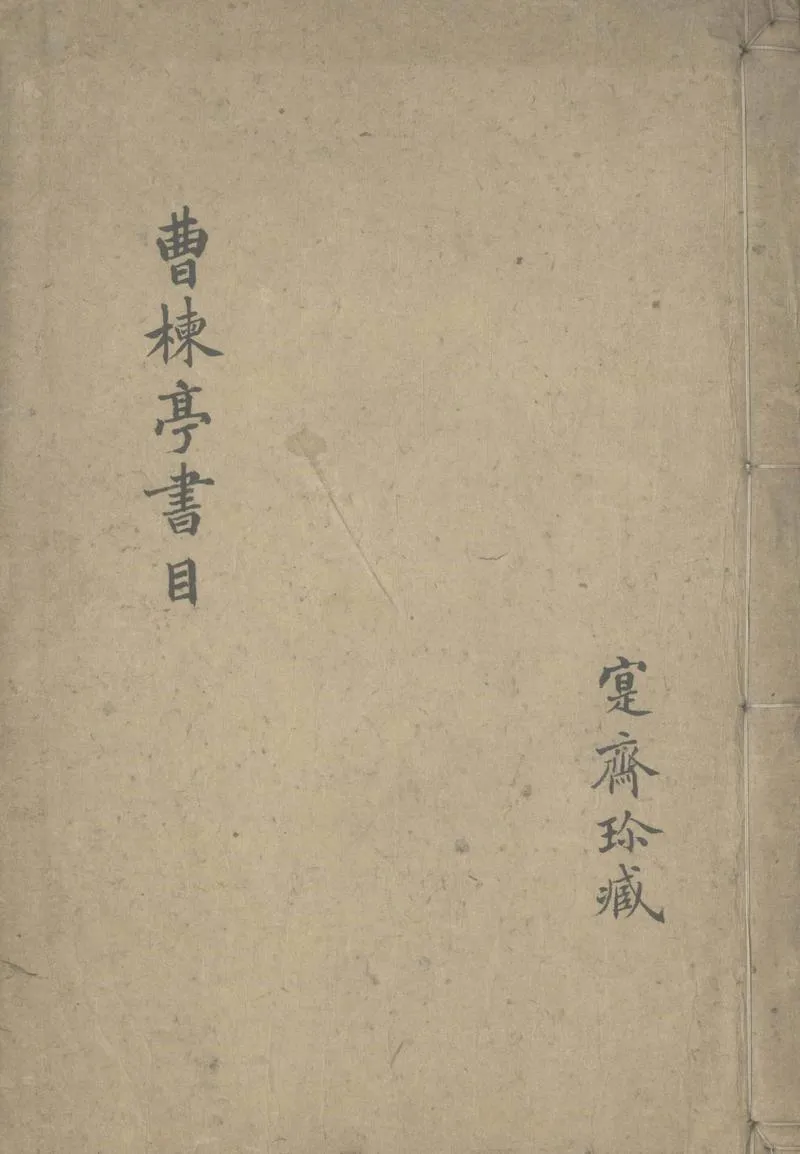 寔齋珍臧
曹楝亭書目